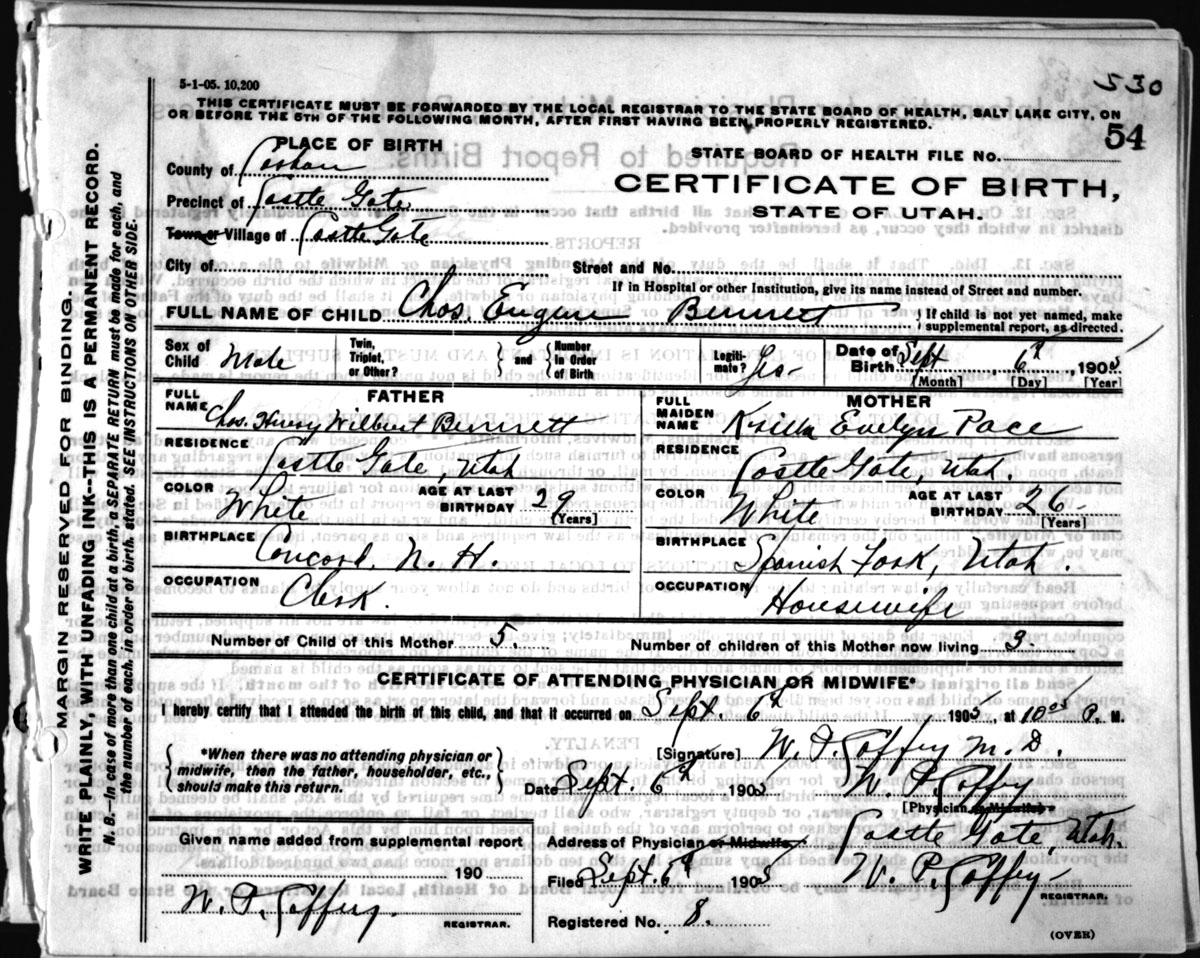 5-1-05. 10,200
530
THIS CERTIFICATE MUST BE FORWARDED BY THE LOCAL REGISTRAR TO THE STATE BOARD OF HEALTH, SALT LAKE CITY, ON
OR BEFORE THE 5TH OF THE FOLLOWING MONTH, AFTER FIRST HAVING BEEN PROPERLY REGISTERED.
54
PLACE OF BIRTH
STATE BOARD OF HEALTH FILE NO.
County of
CERTIFICATE OF BIRTH,
Precinct of Castle Gate
STATE OF UTAH.
Town or Village of Castle Gate
City of Street and No.
If in Hospital or other Institution, give its name instead of Street and number.
FULL NAME OF CHILD Chas. Eugene Bennett { If child is not yet named, make
supplemental report, as directed.
Sex of Child Male Twin, Triplet, or Other? { and } Number in Order of Birth Legitimate? Yes- Date of Birth Sept 6th, 1905
[Month] [Day] [Year]
FATHER
FULL NAME Chas. Henry Wilbert Bennett
RESIDENCE Castle Gate, Utah
COLOR White AGE AT LAST BIRTHDAY 29 [Years]
BIRTHPLACE Concord, N. H.
OCCUPATION Clerk.
MOTHER
FULL MAIDEN NAME Evelyn Pace
RESIDENCE Castle Gate, Utah.
COLOR White AGE AT LAST BIRTHDAY 26- [Years]
BIRTHPLACE Spanish Fork, Utah.
OCCUPATION Housewife
Number of Child of this Mother 5. Number of children of this Mother now living 3.
CERTIFICATE OF ATTENDING PHYSICIAN OR MIDWIFE*
I hereby certify that I attended the birth of this child, and that it occurred on Sept. 6th, 1905, at 10 P. M.
{ *When there was no attending physician or
midwife, then the father, householder, etc.,
should make this return. }
[Signature] W. P. Caffey M. D.
Date Sept. 6th 1905 W. P. Caffey
[Physician or Midwife]
Given names added from supplemental report
190
W. P. Caffey.
REGISTRAR.
Address of Physician or Midwife Castle Gate, Utah.
Filed Sept. 6th 1905 W. P. Caffey-
REGISTRAR.
Registered No. 8.
(OVER)
MARGIN RESERVED FOR BINDING.
WRITE PLAINLY, WITH UNFADING INK--THIS IS A PERMANENT RECORD.
N. B.--In case of more than one child at a birth, a SEPARATE RETURN must be made for each, and
the number of each, in order of birth, stated. SEE INSTRUCTIONS ON OTHER SIDE.